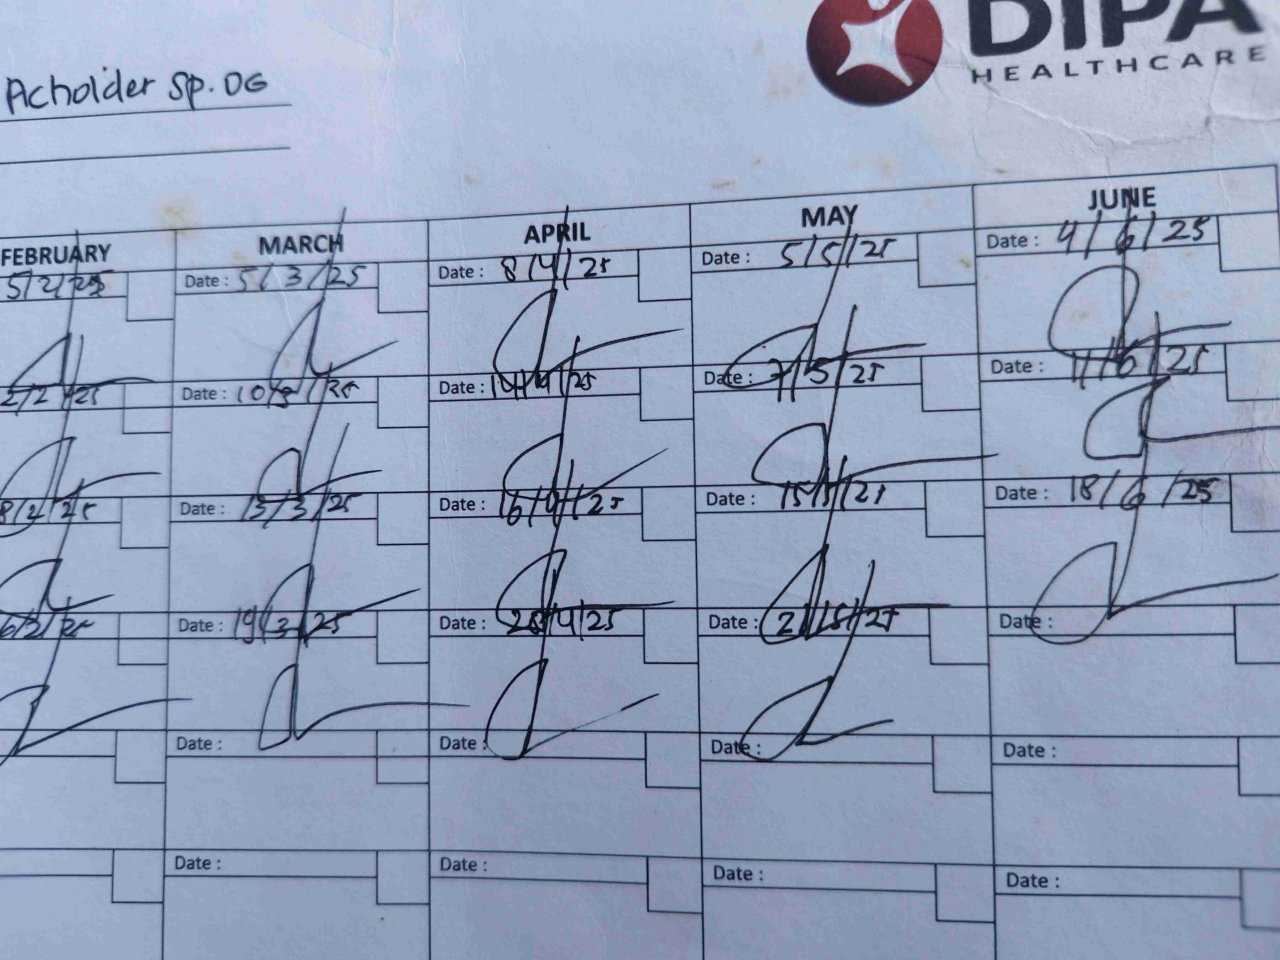 DIPA
HEALTHCARE
Acholder Sp. OG
FEBRUARY MARCH APRIL MAY JUNE
5/2/25 Date : 5/3/25 Date : 8/4/25 Date : 5/5/25 Date : 4/6/25
2/2/25 Date : 10/3/25 Date : 14/4/25 Date : 7/5/25 Date : 11/6/25
8/2/25 Date : 13/3/25 Date : 16/4/25 Date : 15/5/25 Date : 18/6/25
6/2/25 Date : 19/3/25 Date : 28/4/25 Date : 21/5/25 Date :
Date : Date : Date : Date :
Date : Date : Date : Date :